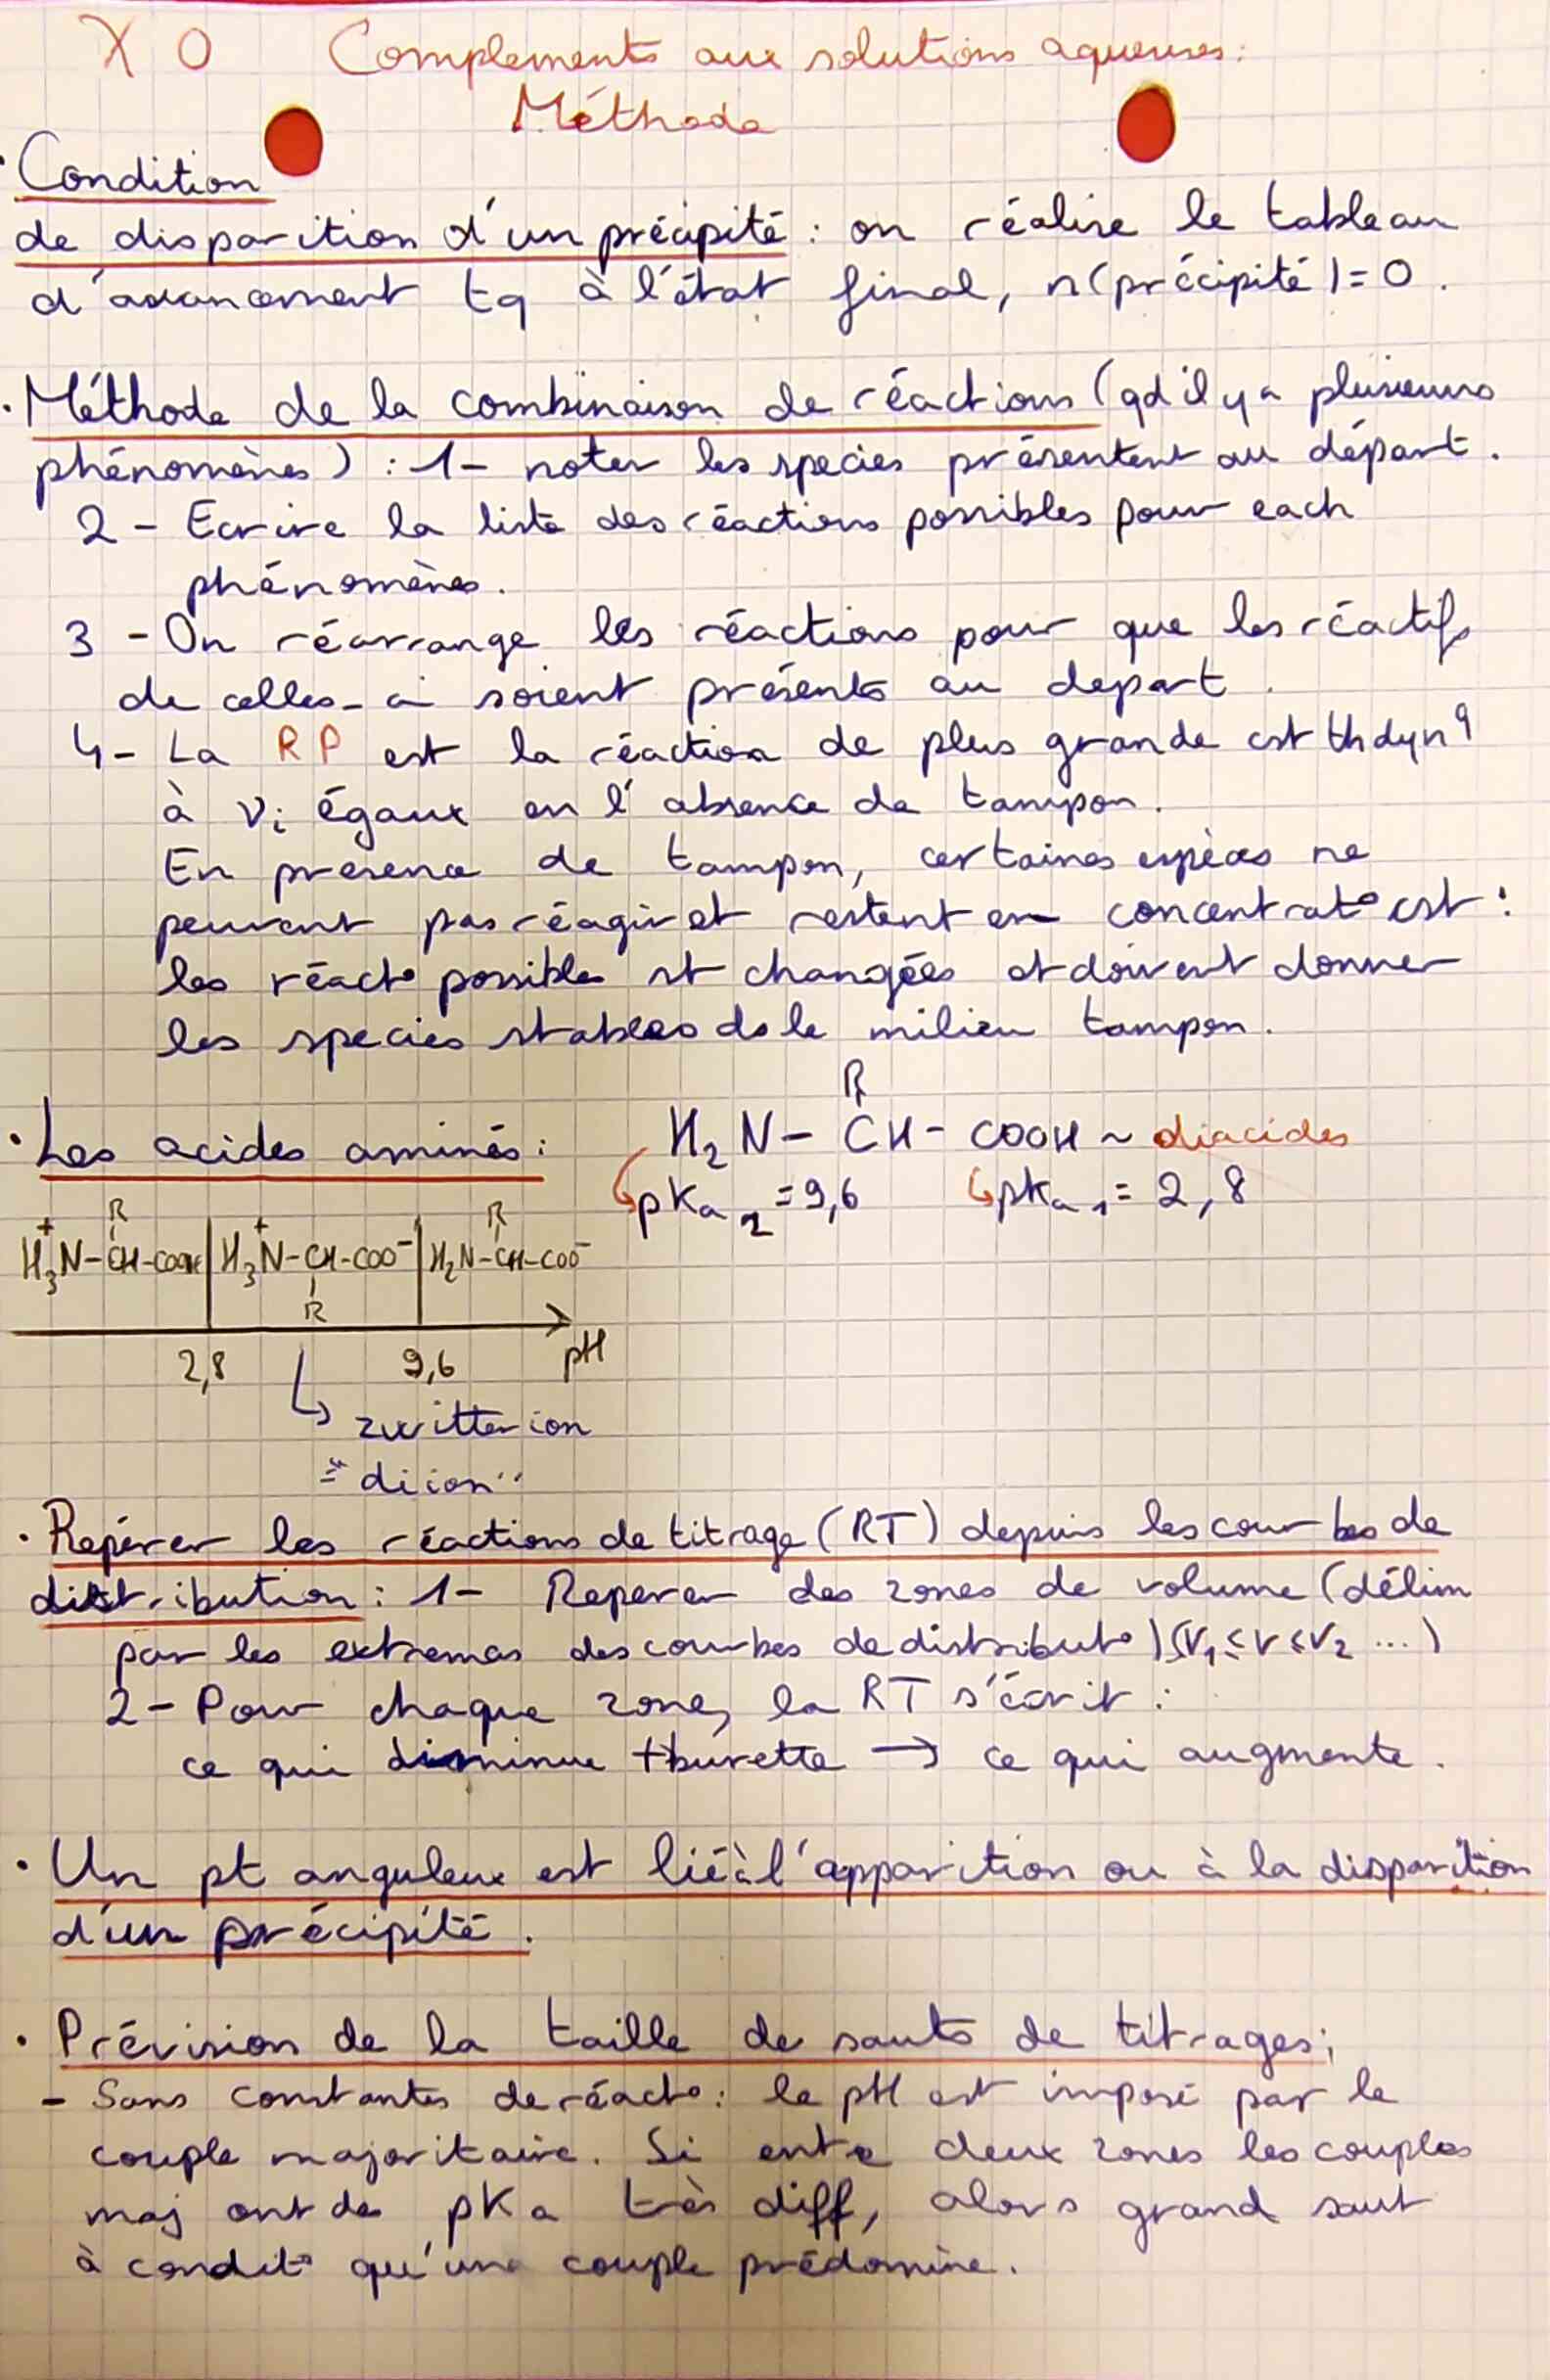 X 0 Complements aux solutions aqueuses:
Méthode
• Condition
de disparition d'un précipité : on réalise le tableau
d'avancement tq à l'état final, n(précipité) = 0.
• Méthode de la combinaison de réactions (qd il y a plusieurs
phénomènes) : 1- noter les species présentent au départ.
2 - Ecrire la liste des réactions possibles pour each
phénomènes.
3 - On réarrange les réactions pour que les réactifs
de celles-ci soient présents au depart.
4- La RP est la réaction de plus grande cst thdynq
à νi égaux en l'absence de tampon.
En presence de tampon, certaines espèces ne
peuvent pas réagir et restent en concentrat° cst :
les réact° possibles st changées et doivent donner
les species stables ds le milieu tampon.
R
• Les acides aminés : H2N - CH - COOH ~ diacides
↳ pKa2 = 9,6 ↳ pKa1 = 2,8
R R
H3N+-CH-COOH | H3N+-CH-COO- | H2N-CH-COO-
R
2,8 9,6 pH
↳ zwitterion
= "diion"
• Repérer les réactions de titrage (RT) depuis les courbes de
distribution : 1- Reperer des zones de volume (délim
par les extremas des courbes de distribut°) (V1 ≤ V ≤ V2 ...)
2- Pour chaque zone, la RT s'écrit :
ce qui diminue + burette → ce qui augmente.
• Un pt anguleux est lié à l'apparition ou à la disparition
d'un précipité.
• Prévision de la taille de sauts de titrages :
- Sans constantes de réact° : le pH est imposé par le
couple majoritaire. Si entre deux zones les couples
maj ont des pKa très diff, alors grand saut
à condit° qu'un couple prédomine.